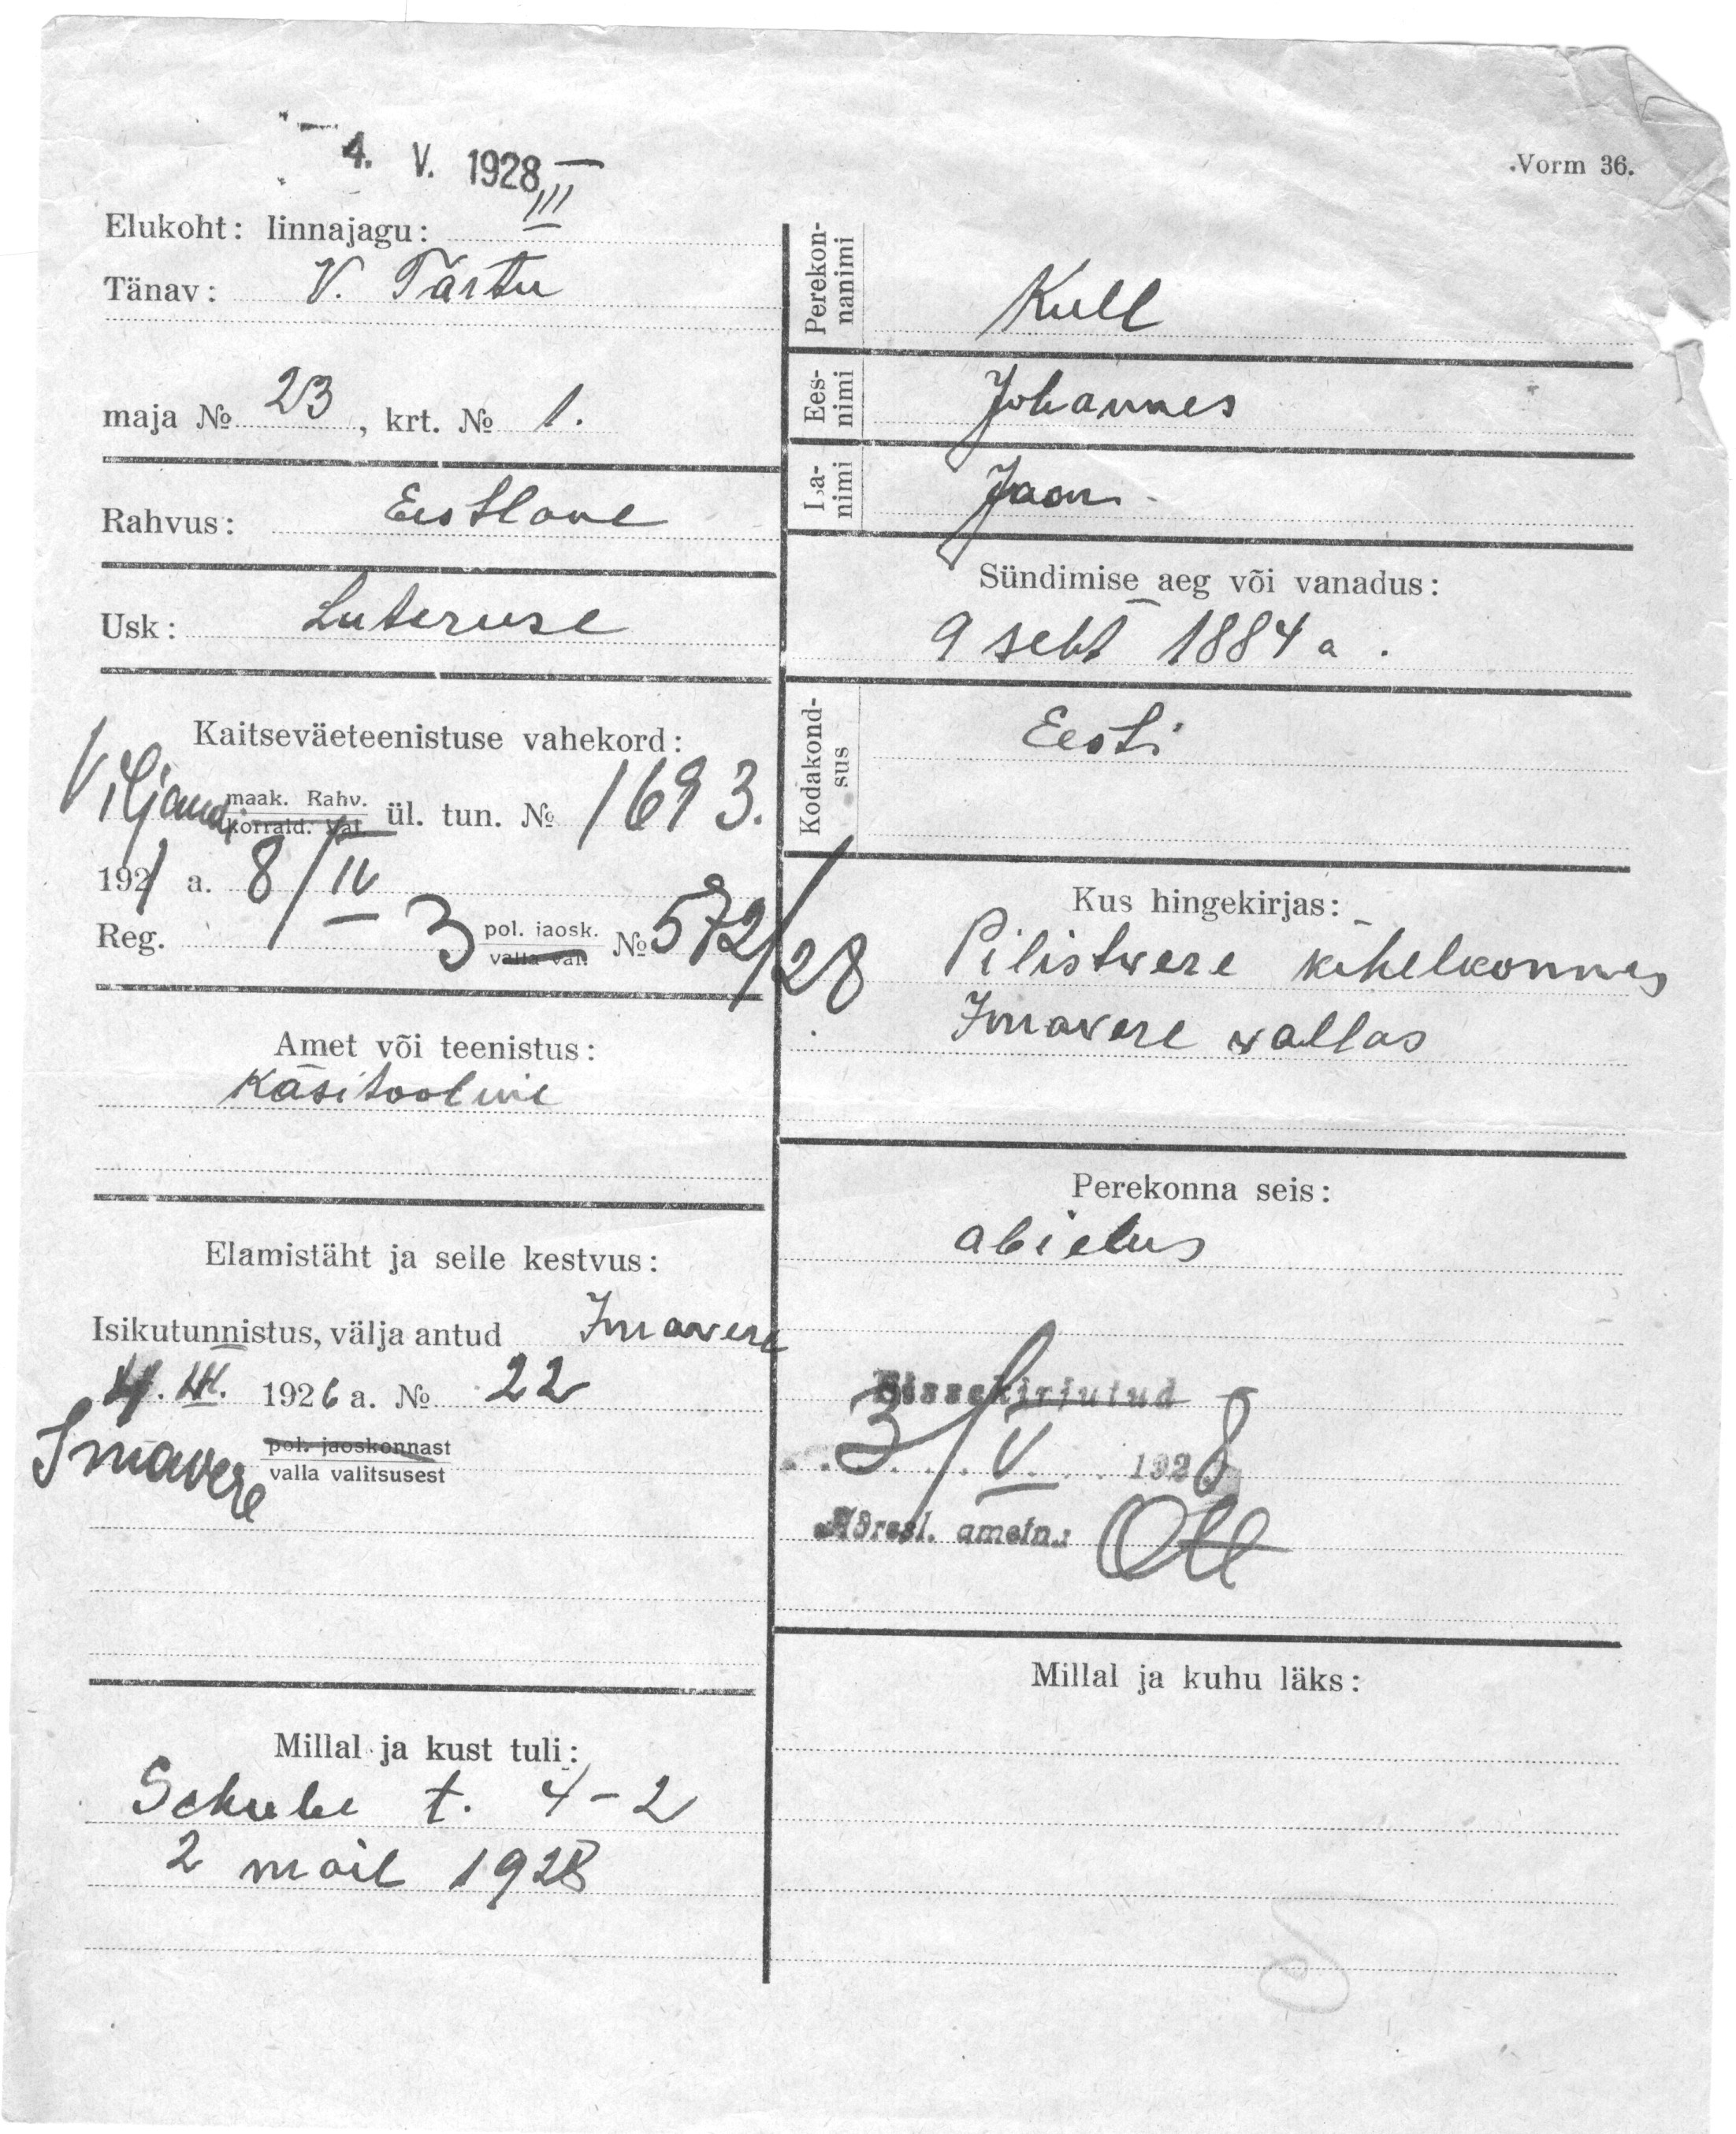 4. V. 1928
Vorm 36.
Elukoht: linnajagu: III
Tänav: V. Tartu
maja № 23, krt. № 1.
Rahvus: Eestlane
Usk: Luteruse
Kaitseväeteenistuse vahekord:
Viljandi maak. Rahv. ül. tun. № 1693.
korrald. Val.
1921 a. 8/IV
Reg. 3 pol. jaosk. № 572/28
valla val.
Amet või teenistus:
Käsitooline
Elamistäht ja selle kestvus:
Isikutunnistus, välja antud Imavere
III. 1926 a. № 22
Imavere pol. jaoskonnast
valla valitsusest
Millal ja kust tuli:
Schube t. 4-2
2 mail 1928
Perekon-
nanimi
Kull
Ees-
nimi
Johannes
Isa-
nimi
Jaan
Sündimise aeg või vanadus:
9 sebt 1884 a.
Kodakond-
sus
Eesti
Kus hingekirjas:
Pilistwere kihelkonnas
Imawere wallas
Perekonna seis:
abielus
Sissekirjutud
3/V 1928
Adresl. ametn.:
Millal ja kuhu läks: